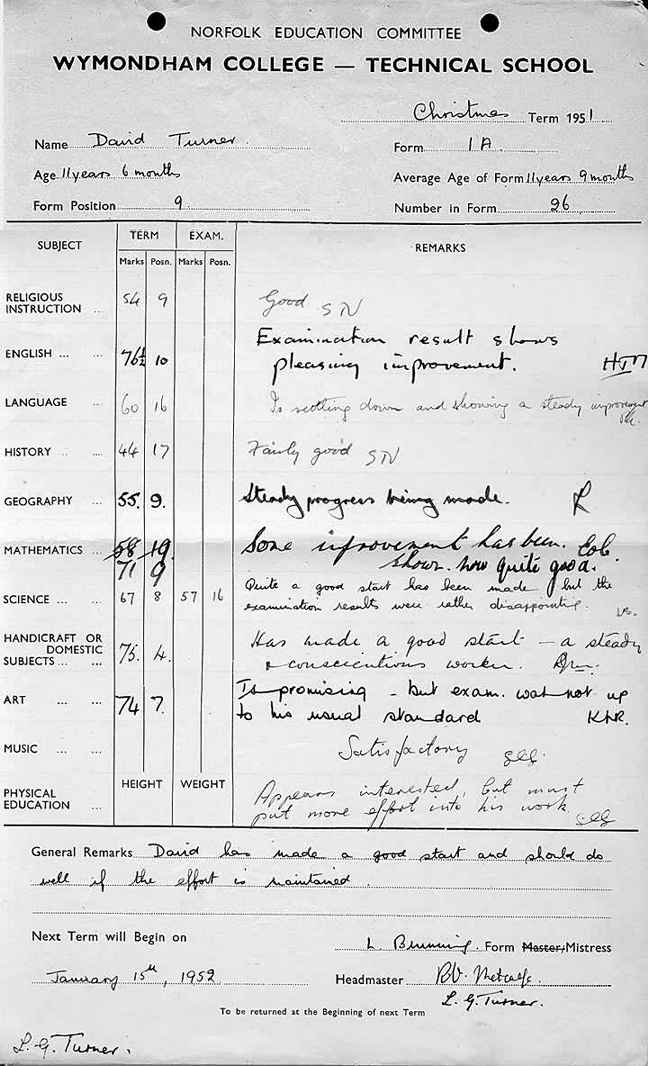 NORFOLK EDUCATION COMMITTEE
WYMONDHAM COLLEGE — TECHNICAL SCHOOL
Christmas Term 1951
Name David Turner.
Form 1A
Age 11 years 6 months
Average Age of Form 11 years 9 months
Form Position 9
Number in Form 26
SUBJECT TERM EXAM. REMARKS
Marks Posn. Marks Posn.
RELIGIOUS INSTRUCTION ... 54 9 Good STV
ENGLISH ... ... 76½ 10 Examination result shows
pleasing improvement. HTM
LANGUAGE ... 60 16 Is settling down and showing a steady improvement
HISTORY ... ... 44 17 Fairly good STV
GEOGRAPHY ... 55. 9. Steady progress being made.
MATHEMATICS ... 58 19. Some improvement has been
71 9 shown. now quite good.
SCIENCE ... ... 67 8 57 16 Quite a good start has been made, but the
examination results were rather disappointing.
HANDICRAFT OR DOMESTIC SUBJECTS ... ... 75. 4. Has made a good start — a steady
& conscientious worker.
ART ... ... 74 7. Is promising - but exam. was not up
to his usual standard KNR.
MUSIC ... ... Satisfactory geg.
HEIGHT WEIGHT
PHYSICAL EDUCATION ... Appears interested, but must
put more effort into his work. geg
General Remarks David has made a good start and should do
well if the effort is maintained.
Next Term will Begin on
L. Brunning. Form Master/Mistress
January 15th, 1952
Headmaster P.V. Metcalfe.
L. G. Turner.
To be returned at the Beginning of next Term
L. G. Turner.